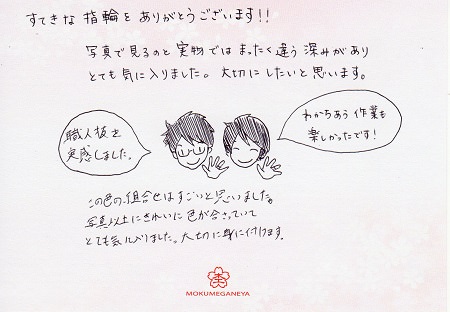 すてきな指輪をありがとうございます!!
写真で見るのと実物ではまったく違う深みがあり
とても気に入りました。大切にしたいと思います。
職人技を
実感しました。
わかちあう作業も
楽しかったです!
この色の組合せはすごいと思いました。
写真以上にきれいに色が合さっていて
とても気に入りました。大切に身に付けます.
MOKUMEGANEYA